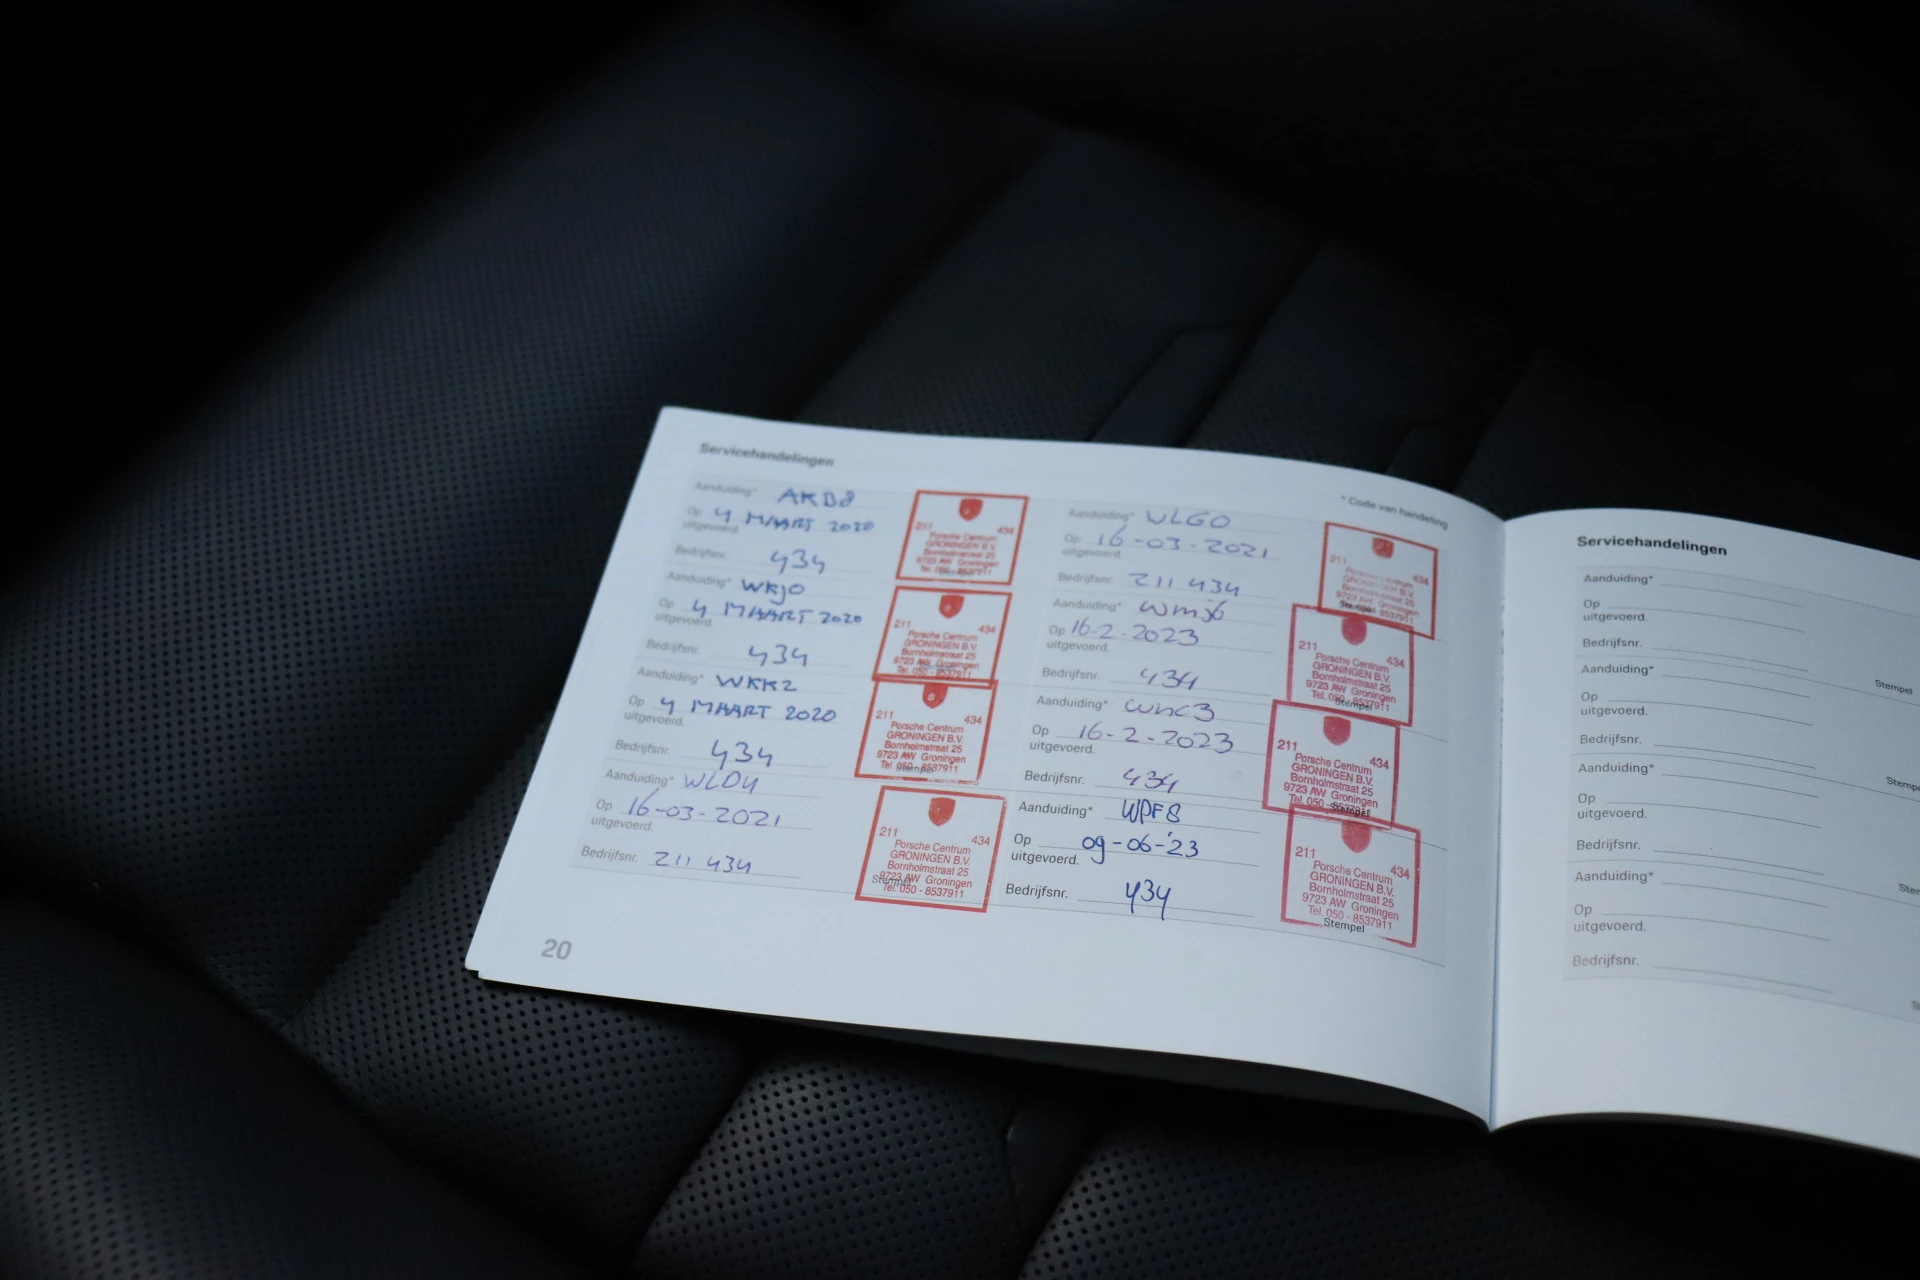 Servicehandelingen
* Code van handeling
Aanduiding* AKB8
Op 4 MAART 2020
uitgevoerd.
Bedrijfsnr. 434
211 434
Porsche Centrum
GRONINGEN B.V.
Bornholmstraat 25
9723 AW Groningen
Tel. 050 - 8537911
Stempel
Aanduiding* WKJ0
Op 4 MAART 2020
uitgevoerd.
Bedrijfsnr. 434
211 434
Porsche Centrum
GRONINGEN B.V.
Bornholmstraat 25
9723 AW Groningen
Tel. 050 - 8537911
Aanduiding* WKK2
Op 4 MAART 2020
uitgevoerd.
Bedrijfsnr. 434
211 434
Porsche Centrum
GRONINGEN B.V.
Bornholmstraat 25
9723 AW Groningen
Tel. 050 - 8537911
Stempel
Aanduiding* WLD4
Op 16-03-2021
uitgevoerd.
Bedrijfsnr. 211 434
211 434
Porsche Centrum
GRONINGEN B.V.
Bornholmstraat 25
9723 AW Groningen
Tel. 050 - 8537911
Stempel
Aanduiding* WLG0
Op 16-03-2021
uitgevoerd.
Bedrijfsnr. 211 434
211 434
Porsche Centrum
GRONINGEN B.V.
Bornholmstraat 25
9723 AW Groningen
Tel. 050 - 8537911
Stempel
Aanduiding* WMJ6
Op 16-2-2023
uitgevoerd.
Bedrijfsnr. 434
211 434
Porsche Centrum
GRONINGEN B.V.
Bornholmstraat 25
9723 AW Groningen
Tel. 050 - 8537911
Stempel
Aanduiding* WNC3
Op 16-2-2023
uitgevoerd.
Bedrijfsnr. 434
211 434
Porsche Centrum
GRONINGEN B.V.
Bornholmstraat 25
9723 AW Groningen
Tel. 050 - 8537911
Stempel
Aanduiding* WPF8
Op 09-06-'23
uitgevoerd.
Bedrijfsnr. 434
211 434
Porsche Centrum
GRONINGEN B.V.
Bornholmstraat 25
9723 AW Groningen
Tel. 050 - 8537911
Stempel
20
Servicehandelingen
Aanduiding*
Op
uitgevoerd.
Bedrijfsnr.
Stempel
Aanduiding*
Op
uitgevoerd.
Bedrijfsnr.
Stempe
Aanduiding*
Op
uitgevoerd.
Bedrijfsnr.
Stem
Aanduiding*
Op
uitgevoerd.
Bedrijfsnr.